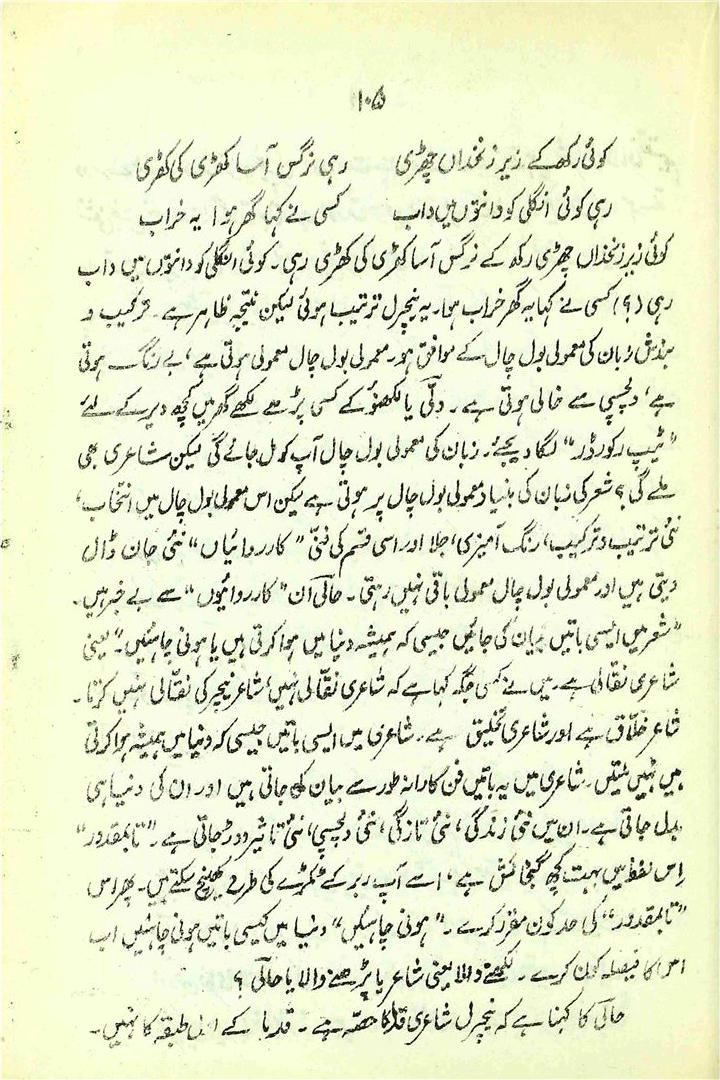 ۱۰۵
کوئی رکھ کے زیر زنخداں چھڑی رہی نرگس آسا کھڑی کی کھڑی
رہی کوئی انگلی کو دانتوں میں داب کسی نے کہا گھر ہوا یہ خراب
کوئی زیر زنخداں چھڑی رکھ کے نرگس آسا کھڑی کی کھڑی رہی۔ کوئی انگلی کو دانتوں میں داب
رہی (؟) کسی نے کہا یہ گھر خراب ہوا۔ یہ نیچرل ترتیب ہوئی لیکن نتیجہ ظاہر ہے۔ ترکیب و
بندش زبان کی معمولی بول چال کے موافق ہو۔ معمولی بول چال معمولی ہوتی ہے، بے رنگ ہوتی
ہے، دلچسپی سے خالی ہوتی ہے۔ دلّی یا لکھنؤ کے کسی پڑھے لکھے گھر میں کچھ دیر کے لئے
"ٹیپ رکورڈر" لگا دیجئے۔ زبان کی معمولی بول چال آپ کو مل جائے گی لیکن شاعری بھی
ملے گی؟ شعر کی زبان کی بنیاد معمولی بول چال پر ہوتی ہے لیکن اس معمولی بول چال میں انتخاب،
نئی ترتیب و ترکیب، رنگ آمیزی، جلا اور اسی قسم کی فنّی "کارروائیاں" نئی جان ڈال
دیتی ہیں اور معمولی بول چال معمولی باقی نہیں رہتی۔ حالیؔ ان "کارروائیوں" سے بے خبر ہیں۔
"شعر میں ایسی باتیں بیان کی جائیں جیسی کہ ہمیشہ دنیا میں ہوا کرتی ہیں یا ہونی چاہئیں۔" یعنی
شاعری نقّالی ہے۔ میں نے کسی جگہ کہا ہے کہ شاعری نقّالی نہیں، شاعر نیچر کی نقّالی نہیں کرتا۔
شاعر خلّاق ہے اور شاعری تخلیق ہے۔ شاعری میں ایسی باتیں جیسی کہ دنیا میں ہمیشہ ہوا کرتی
ہیں نہیں ملتیں۔ شاعری میں یہ باتیں فن کارانہ طور سے بیان کی جاتی ہیں اور ان کی دنیا ہی
بدل جاتی ہے۔ ان میں نئی زندگی، نئی تازگی، نئی دلچسپی، نئی تاثیر دوڑ جاتی ہے۔ "تا بمقدور"
اس لفظ میں بہت کچھ گنجائش ہے، اسے آپ ربر کے ٹکڑے کی طرح کھینچ سکتے ہیں۔ پھر اس
"تا بمقدور" کی حد کون مقرر کرے۔ "ہونی چاہئیں" دنیا میں کیسی باتیں ہونی چاہئیں اب
اس کا فیصلہ کون کرے۔ لکھنے والا یعنی شاعر یا پڑھنے والا یا حالیؔ؟
حالیؔ کا کہنا ہے کہ نیچرل شاعری قدما کا حصّہ ہے۔ قدما کے اوّل طبقہ کا نہیں۔